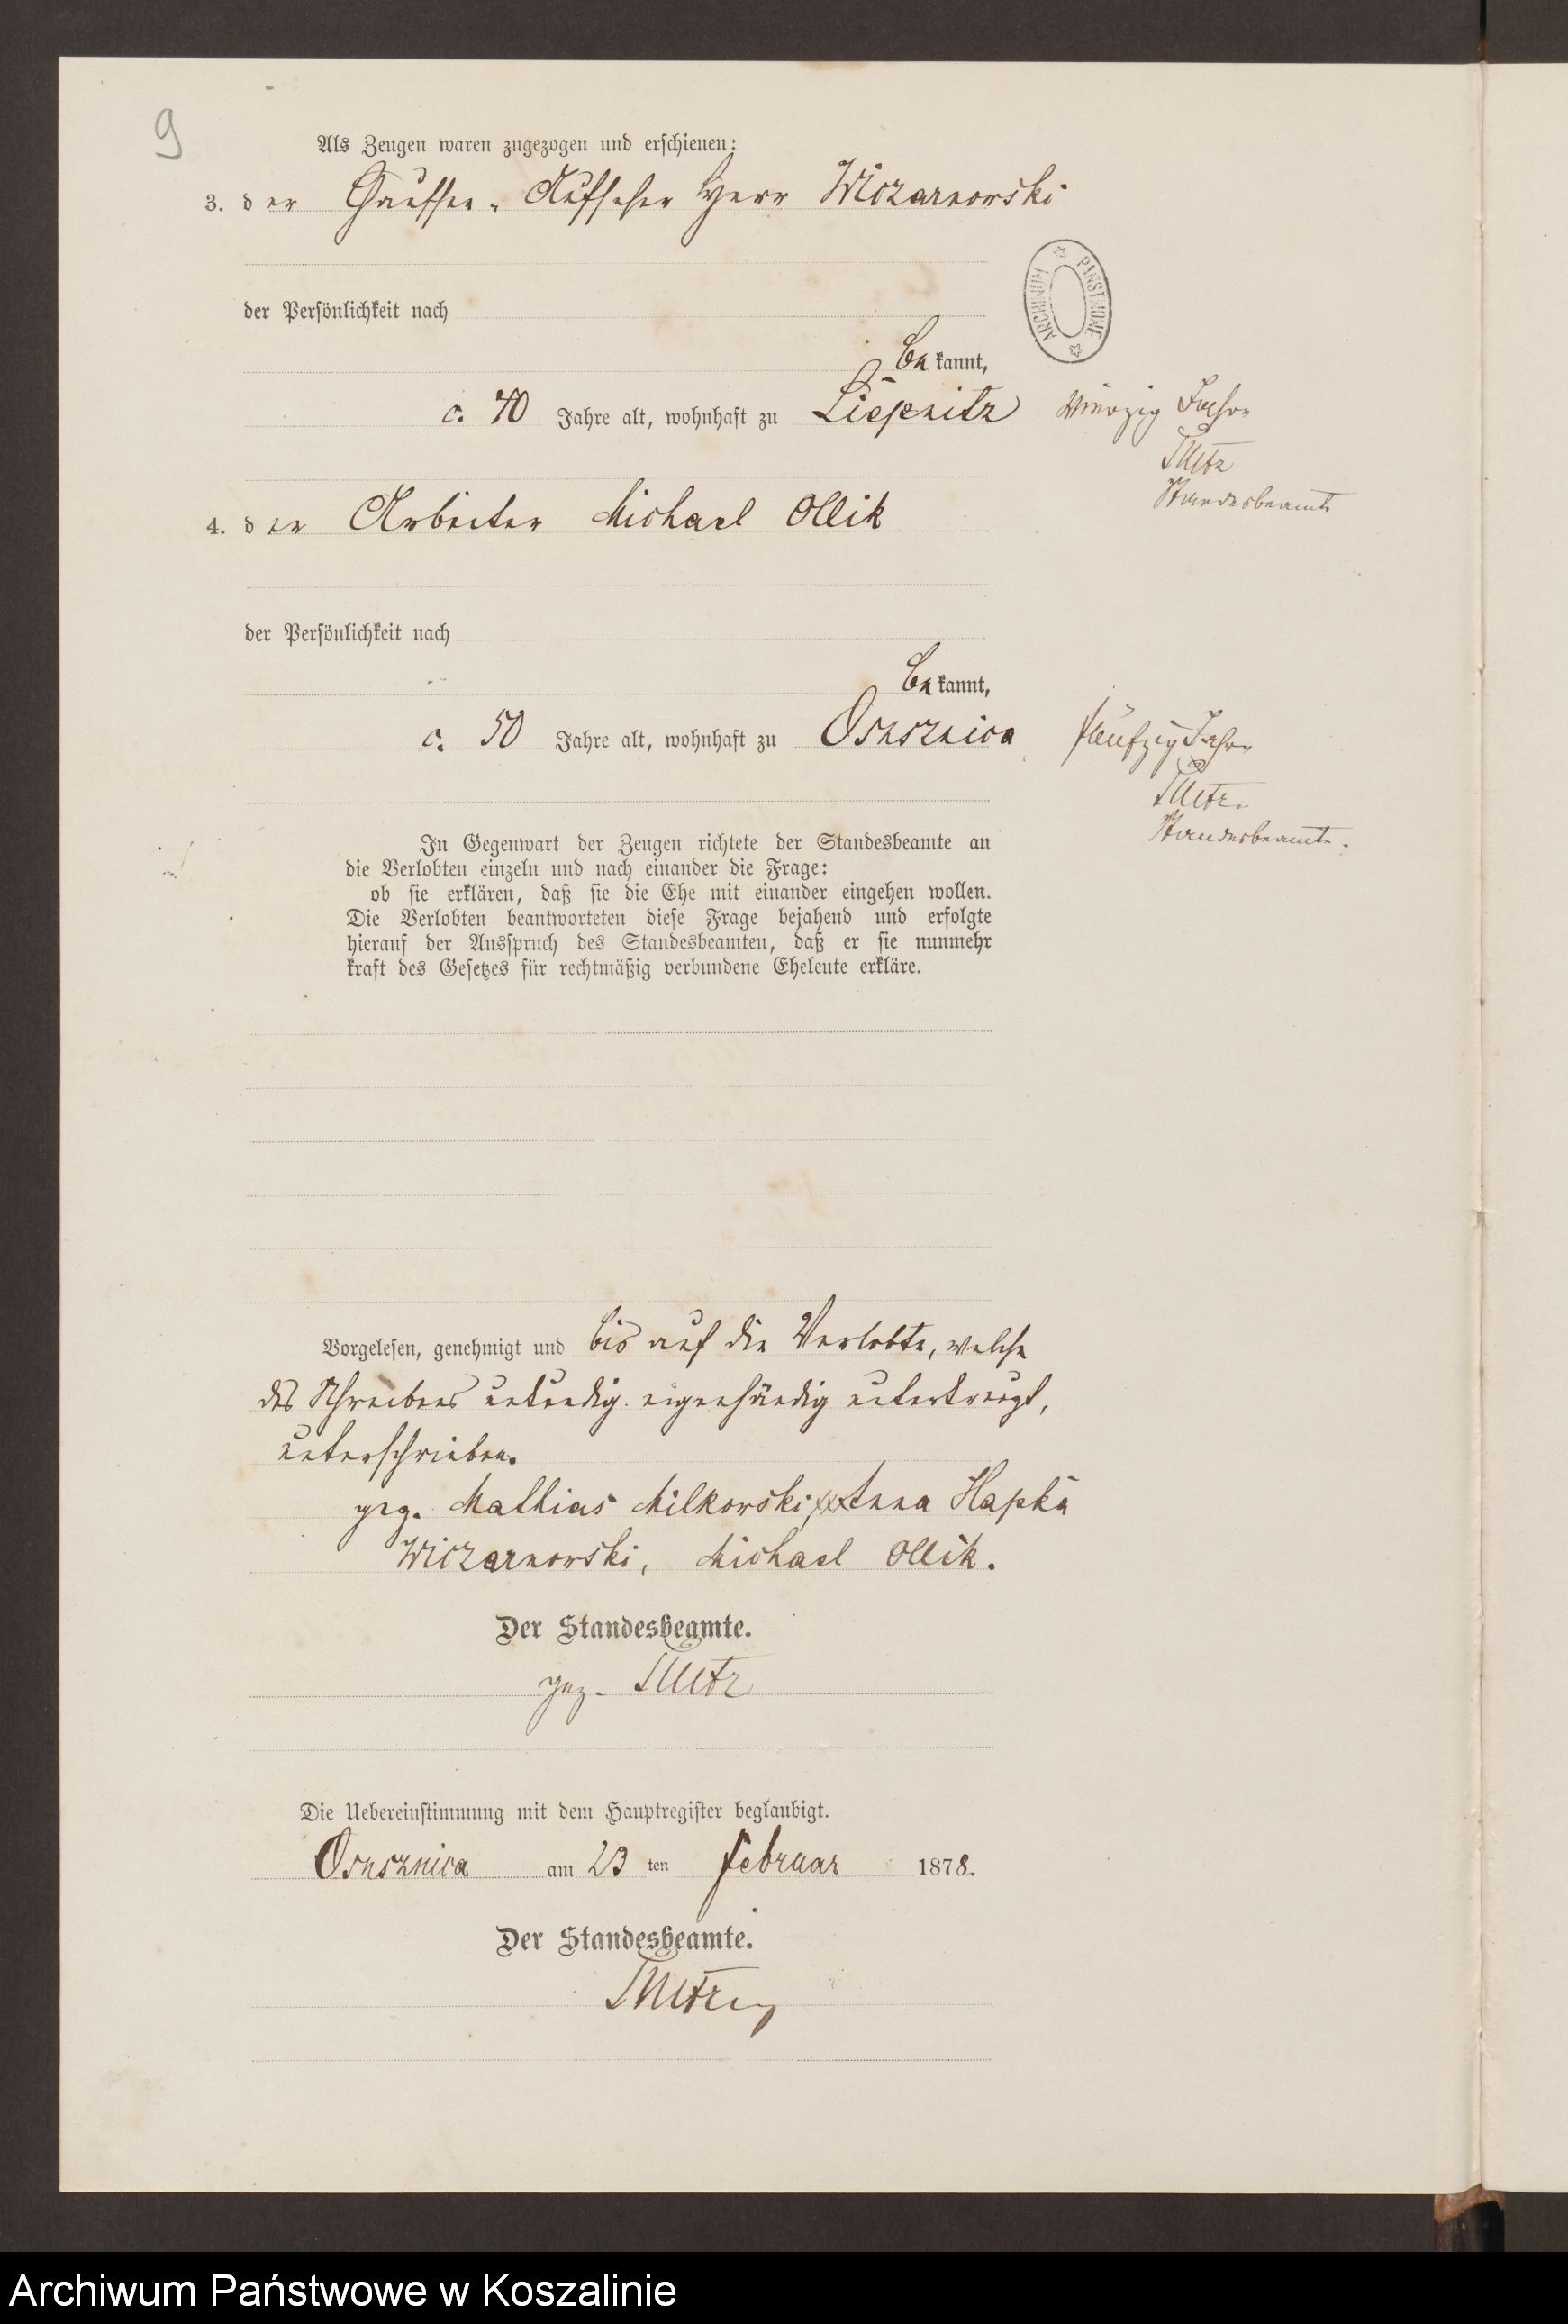 9
Als Zeugen waren zugezogen und erschienen:
3. der Chaussee-Aufseher Herr Wiczarnowski
ARCHIWUM PAŃSTWOWE
der Persönlichkeit nach
bekannt,
c. 40 Jahre alt, wohnhaft zu Liepnitz vierzig Jahre
Standesbeamte
4. der Arbeiter Michael Ollik
der Persönlichkeit nach
bekannt,
c. 50 Jahre alt, wohnhaft zu Osusznica fünfzig Jahre
Standesbeamte.
In Gegenwart der Zeugen richtete der Standesbeamte an
die Verlobten einzeln und nach einander die Frage:
ob sie erklären, daß sie die Ehe mit einander eingehen wollen.
Die Verlobten beantworteten diese Frage bejahend und erfolgte
hierauf der Ausspruch des Standesbeamten, daß er sie nunmehr
kraft des Gesetzes für rechtmäßig verbundene Eheleute erkläre.
Vorgelesen, genehmigt und bis auf die Verlobte, welche
des Schreibens unkundig eigenhändig unterkreuzt,
unterschrieben.
gez. Mathias Milkowski, xxx Anna Hapka
Wiczarnowski, Michael Ollik.
Der Standesbeamte.
gez.
Die Uebereinstimmung mit dem Hauptregister beglaubigt.
Osusznica am 23 ten Februar 1878.
Der Standesbeamte.
Archiwum Państwowe w Koszalinie